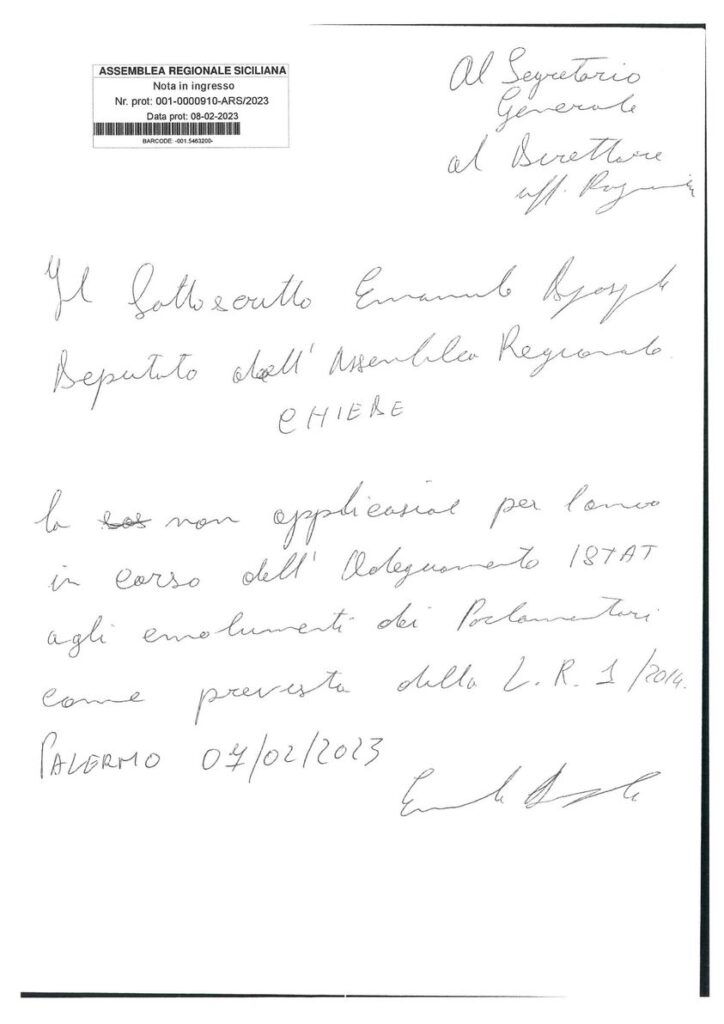 ASSEMBLEA REGIONALE SICILIANA
Nota in ingresso
Nr. prot: 001-0000910-ARS/2023
Data prot: 08-02-2023
BARCODE: -001.5463200-
Al Segretario
Generale
al Direttore
uff. Ragioneria
Il Sottoscritto Emanuele
Deputato dell' Assemblea Regionale.
CHIEDE
la non applicazione per l'anno
in corso dell' Adeguamento ISTAT
agli emolumenti dei Parlamentari
come prevista dalla L.R. 1/2014.
PALERMO 07/02/2023